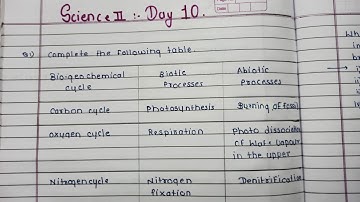 Science II :- Day 10.
Date
Q1) Complete the following table.
Biogeochemical cycle | Biotic Processes | Abiotic Processes
Carbon cycle | Photosynthesis | Burning of fossil
Oxygen cycle | Respiration | Photo dissociat of Wate vapour in the upper
Nitrogen cycle | Nitrogen fixation | Denitrification
Wh